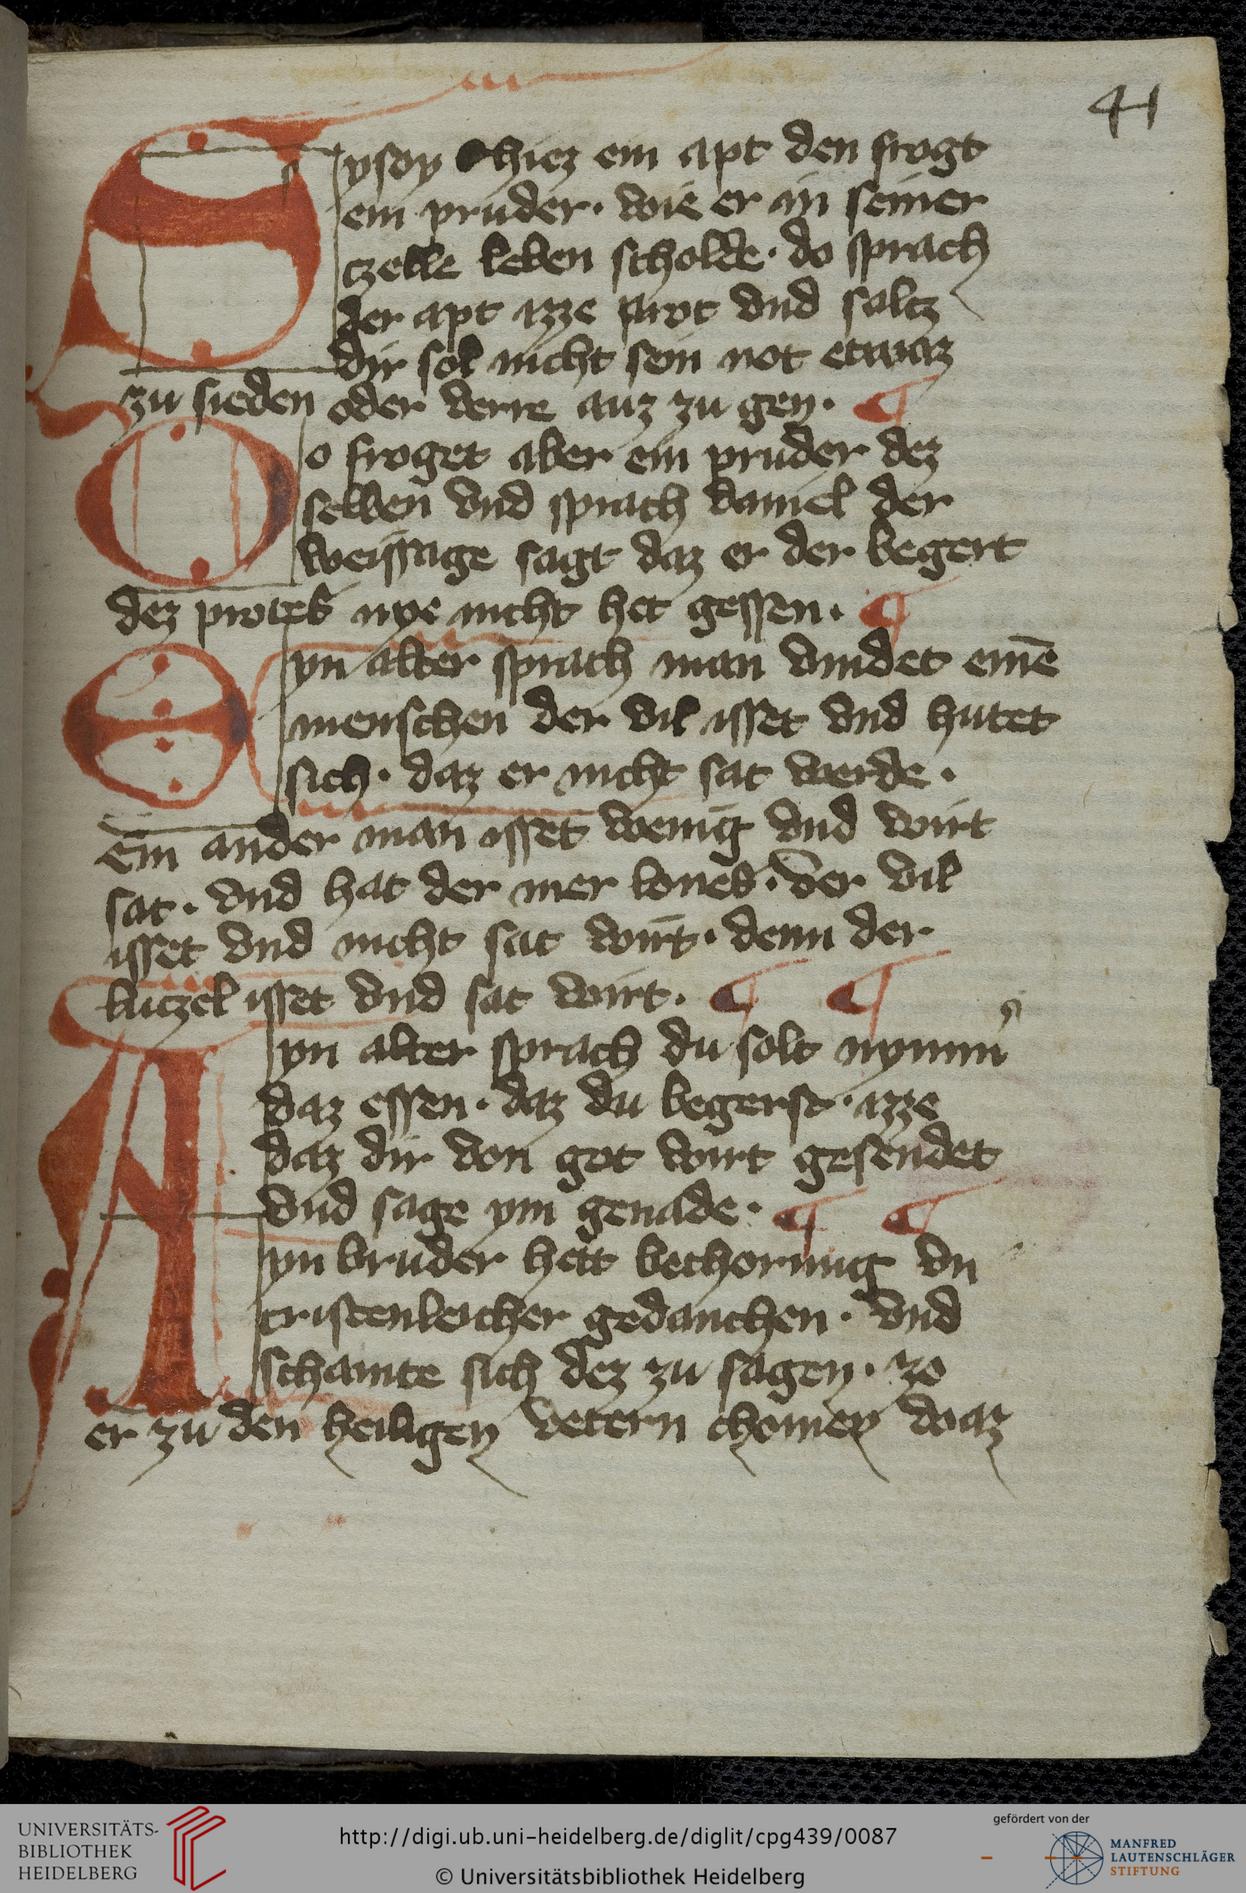 41
Sysoy hiez ein apt den frogt
ein pruder. wie er in seiner
tzelle leben scholde. do sprach
der apt izze prot vnd saltz
dir sol nicht sein not etwaz
zu sieden oder verre auz zu gen.
Do froget aber ein pruder dez
selben vnd sprach daniel der
weissage sagt daz er der begert
dez protes nye nicht het gessen.
Eyn alter sprach man vindet eınē
menschen der vil isset vnd hutet
sich. daz er nicht sat werde.
Ein ander man isset wenig vnd wirt
sat. vnd hat der mer lones. der vil
isset vnd nicht sat wirt. denn der
lutzel isset vnd sat wirt.
Ayn alter sprach du solt nymm̄
daz essen. daz du begerst. izze
daz dir von got wirt gesendet
vnd sage ym genade.
yn bruder hett bechorung vn
cristenleicher gedanchen. vnd
schamte sich dez zu sagen. zo
er zu den heiligen vetern chomen waz
UNIVERSITÄTS-
BIBLIOTHEK
HEIDELBERG
http://digi.ub.uni-heidelberg.de/diglit/cpg439/0087
© Universitätsbibliothek Heidelberg
gefördert von der
MANFRED
LAUTENSCHLÄGER
STIFTUNG